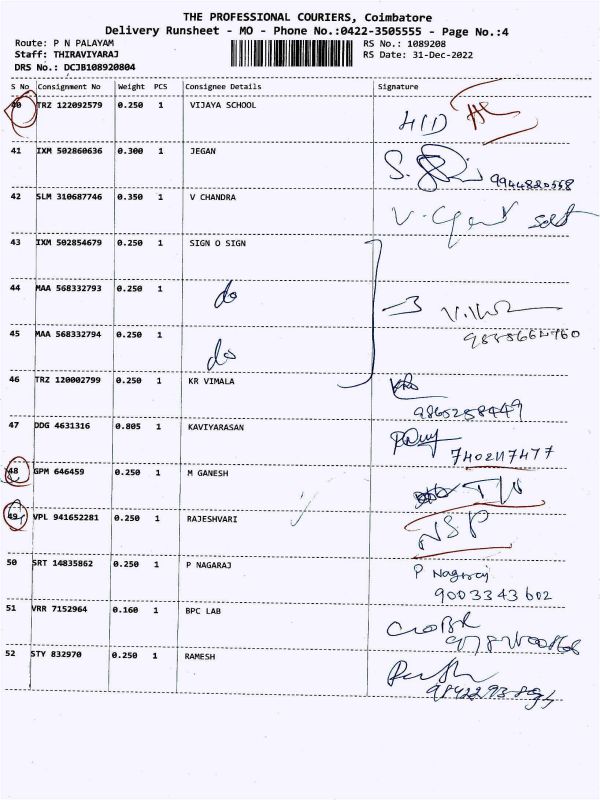 THE PROFESSIONAL COURIERS, Coimbatore
Delivery Runsheet - MO - Phone No.:0422-3505555 - Page No.:4
Route: P N PALAYAM
Staff: THIRAVIYARAJ
DRS No.: DCJB108920804
RS No.: 1089208
RS Date: 31-Dec-2022
S No Consignment No Weight PCS Consignee Details Signature
40 TRZ 122092579 0.250 1 VIJAYA SCHOOL
41 IXM 502860636 0.300 1 JEGAN
42 SLM 310687746 0.350 1 V CHANDRA
43 IXM 502854679 0.250 1 SIGN O SIGN
44 MAA 568332793 0.250 1 do
45 MAA 568332794 0.250 1 do
46 TRZ 120002799 0.250 1 KR VIMALA
9865258449
47 DDG 4631316 0.805 1 KAVIYARASAN
7402117477
48 GPM 646459 0.250 1 M GANESH
49 VPL 941652281 0.250 1 RAJESHVARI NSP
50 SRT 14835862 0.250 1 P NAGARAJ P Nagaraj
9003343602
51 VRR 7152964 0.160 1 BPC LAB
52 STY 832970 0.250 1 RAMESH